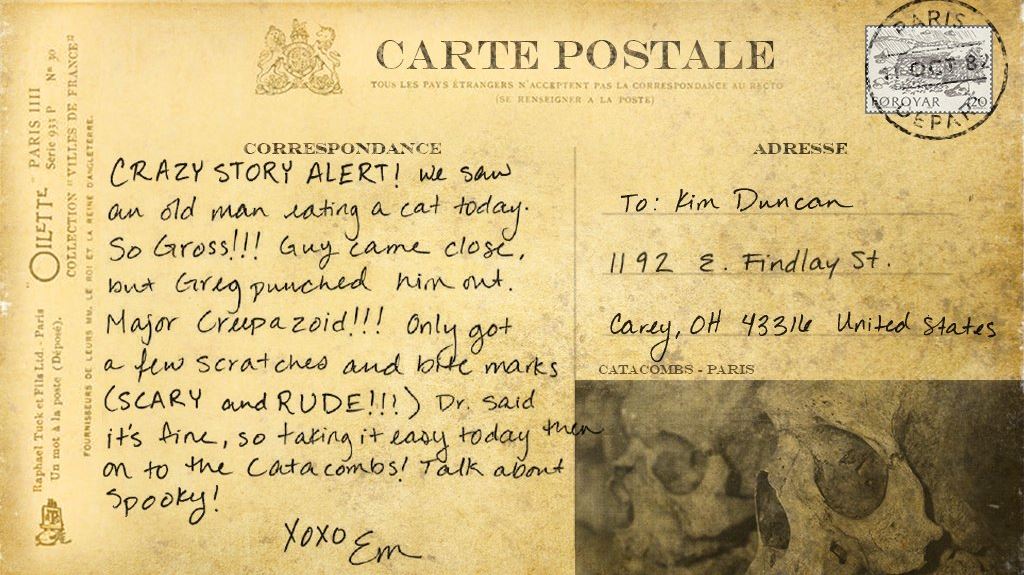 CARTE POSTALE
TOUS LES PAYS ÉTRANGERS N'ACCEPTENT PAS LA CORRESPONDANCE AU RECTO
(SE RENSEIGNER A LA POSTE)
PARIS
OCT 82
FØROYAR 120
DEPART
"OILETTE" PARIS IIII
Série 933 P Nº 30
COLLECTION "VILLES DE FRANCE"
FOURNISSEURS DE LEURS MM. LE ROI ET LA REINE D'ANGLETERRE.
Raphael Tuck et Fils Ltd. Paris
Un mot à la poste (Déposé).
CORRESPONDANCE
CRAZY STORY ALERT! We saw
an old man eating a cat today.
So Gross!!! Guy came close,
but Greg punched him out.
Major Creepazoid!!! Only got
a few scratches and bite marks
(SCARY and RUDE!!!) Dr. said
it's fine, so taking it easy today then
on to the Catacombs! Talk about
Spooky!
XOXO Em
ADRESSE
To: Kim Duncan
1192 E. Findlay St.
Carey, OH 43316 United States
CATACOMBS - PARIS